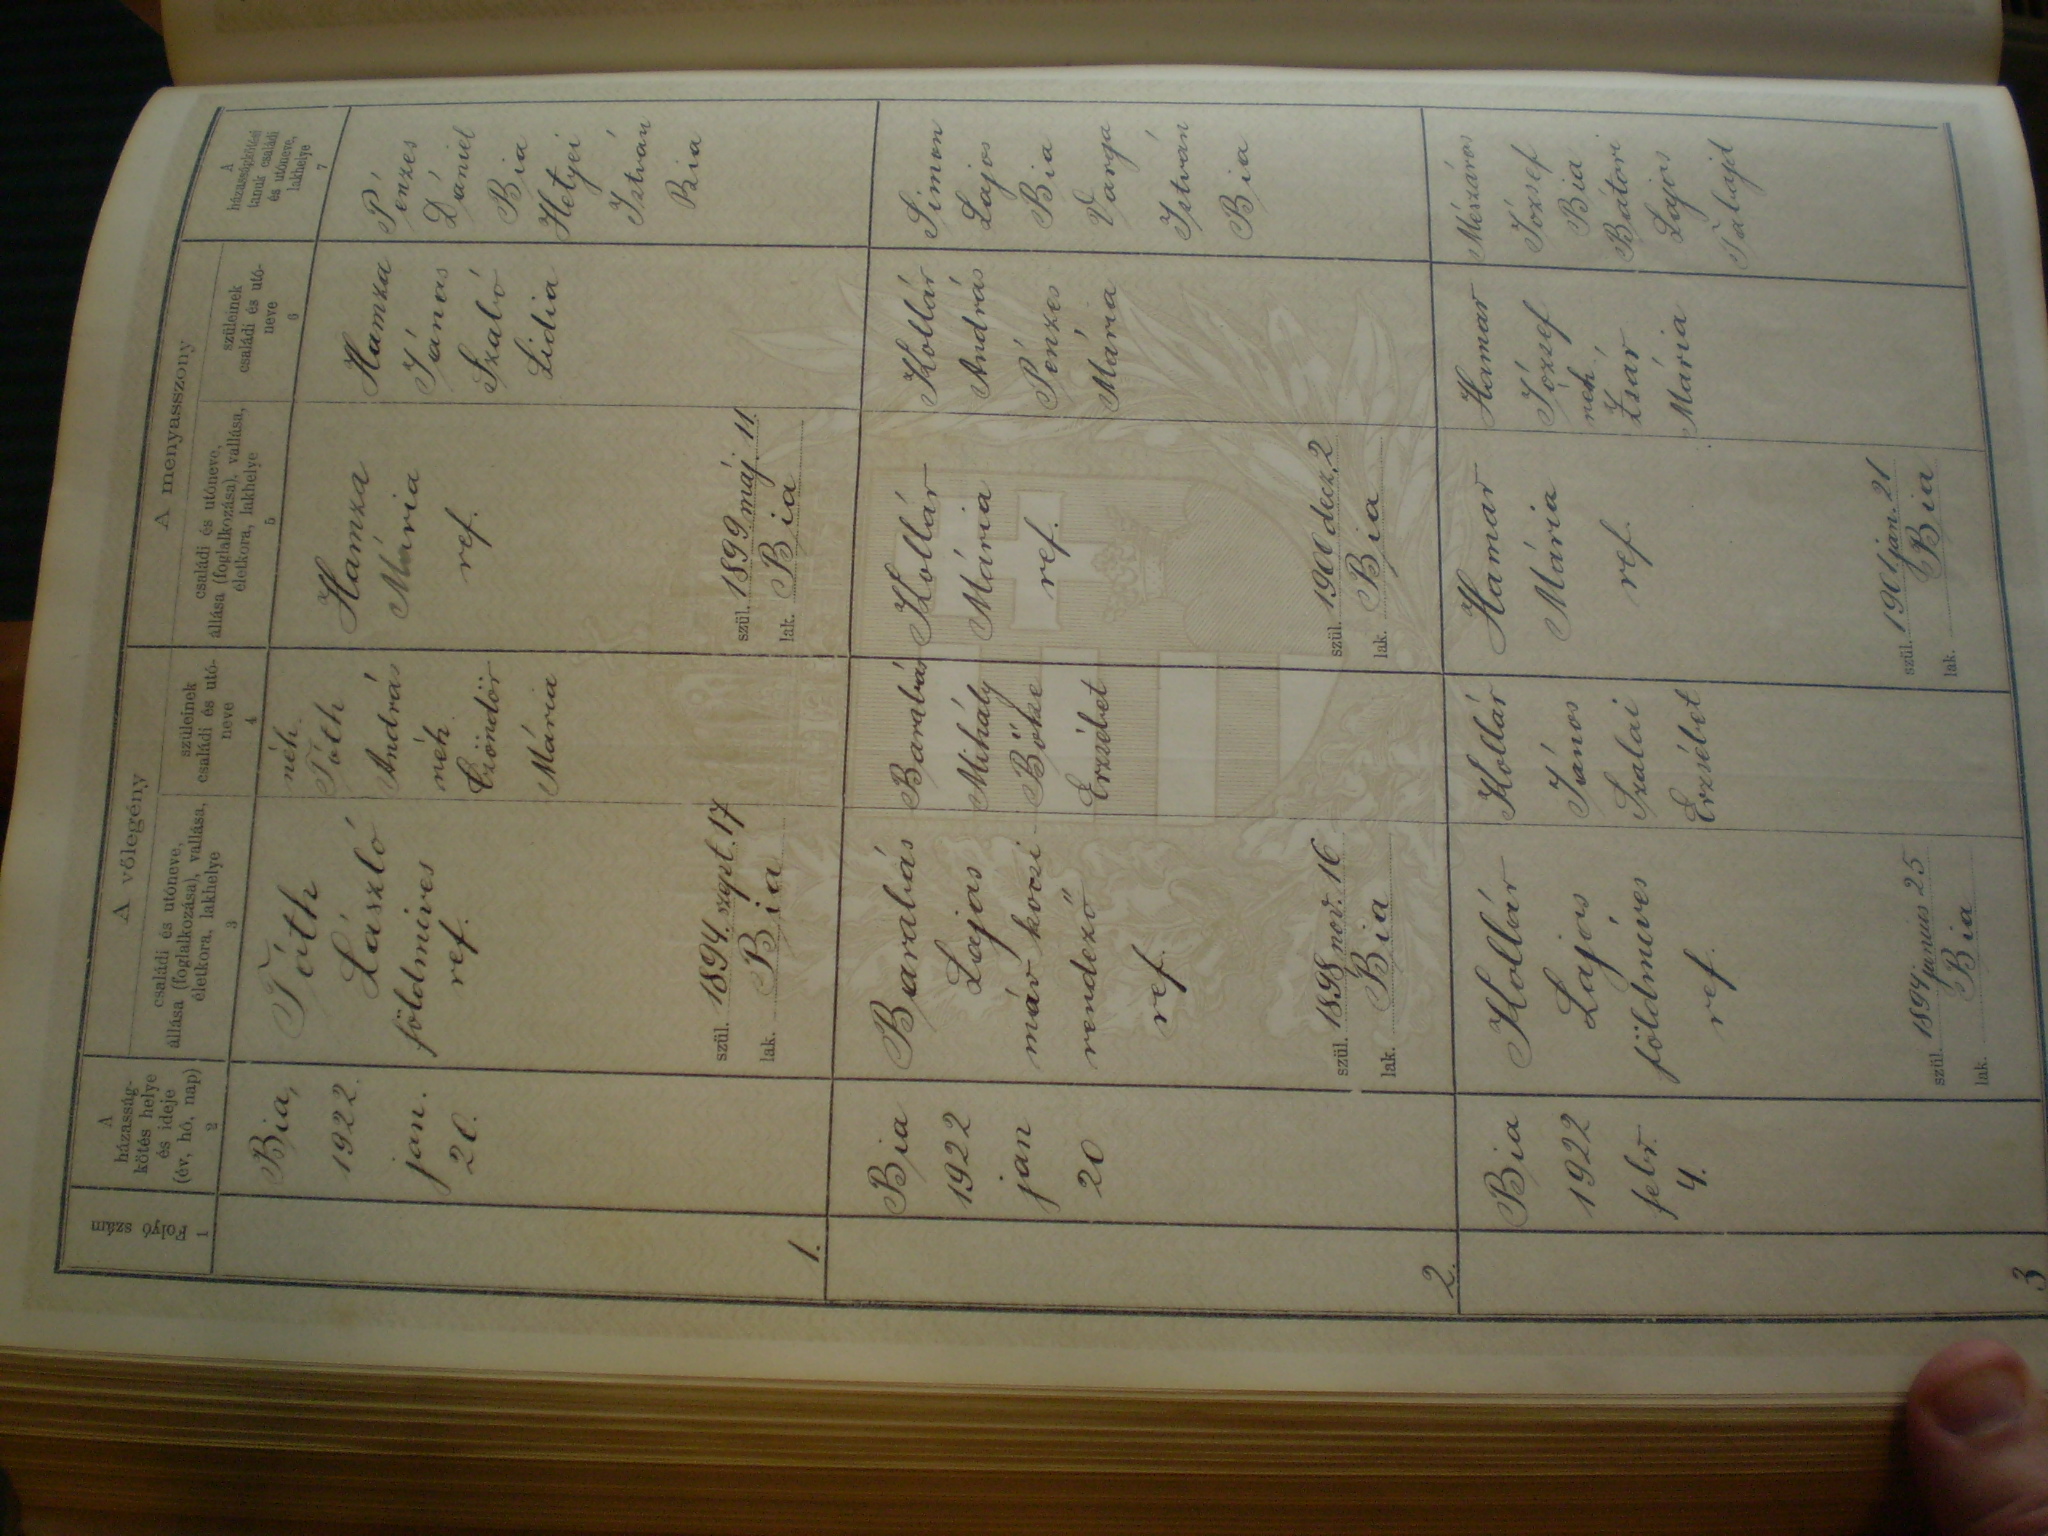 1
Folyó szám
A
házasság-
kötés helye
és ideje
(év, hó, nap)
2
A vőlegény
családi és utóneve,
állása (foglalkozása), vallása,
életkora, lakhelye
3
szüleinek
családi és utó-
neve
4
A menyasszony
családi és utóneve,
állása (foglalkozása), vallása,
életkora, lakhelye
5
szüleinek
családi és utó-
neve
6
A
házasságkötési
tanuk családi
és utóneve,
lakhelye
7
1.
Bia,
1922.
jan.
20.
Tóth
László
földmíves
ref.
szül. 1894. szept. 17
lak. Bia
néh.
Tóth
András
néh
Czöndör
Mária
Hamza
Mária
ref.
szül. 1899 máj. 11.
lak. Bia
Hamza
János
Szabó
Lidia
Pénzes
Dániel
Bia
Hetyei
István
Bia
2.
Bia
1922
jan
20
Barabás
Lajos
máv kocsi
rendező
ref.
szül. 1898 nov. 16
lak. Bia
Barabás
Mihály
Bőke
Erzsébet
Kollár
Mária
ref.
szül. 1900 decz. 2
lak. Bia
Kollár
András
Pénzes
Mária
Simon
Lajos
Bia
Varga
István
Bia
3
Bia
1922
febr.
4.
Kollár
Lajos
földmíves
ref.
szül. 1894 junius 25
lak. Bia
Kollár
János
Szalai
Erzsébet
Hamar
Mária
ref.
szül. 1901 jan. 21
lak. Bia
Hamar
József
néh.
Zsár
Mária
Mészáros
József
Bia
Bátori
Lajos